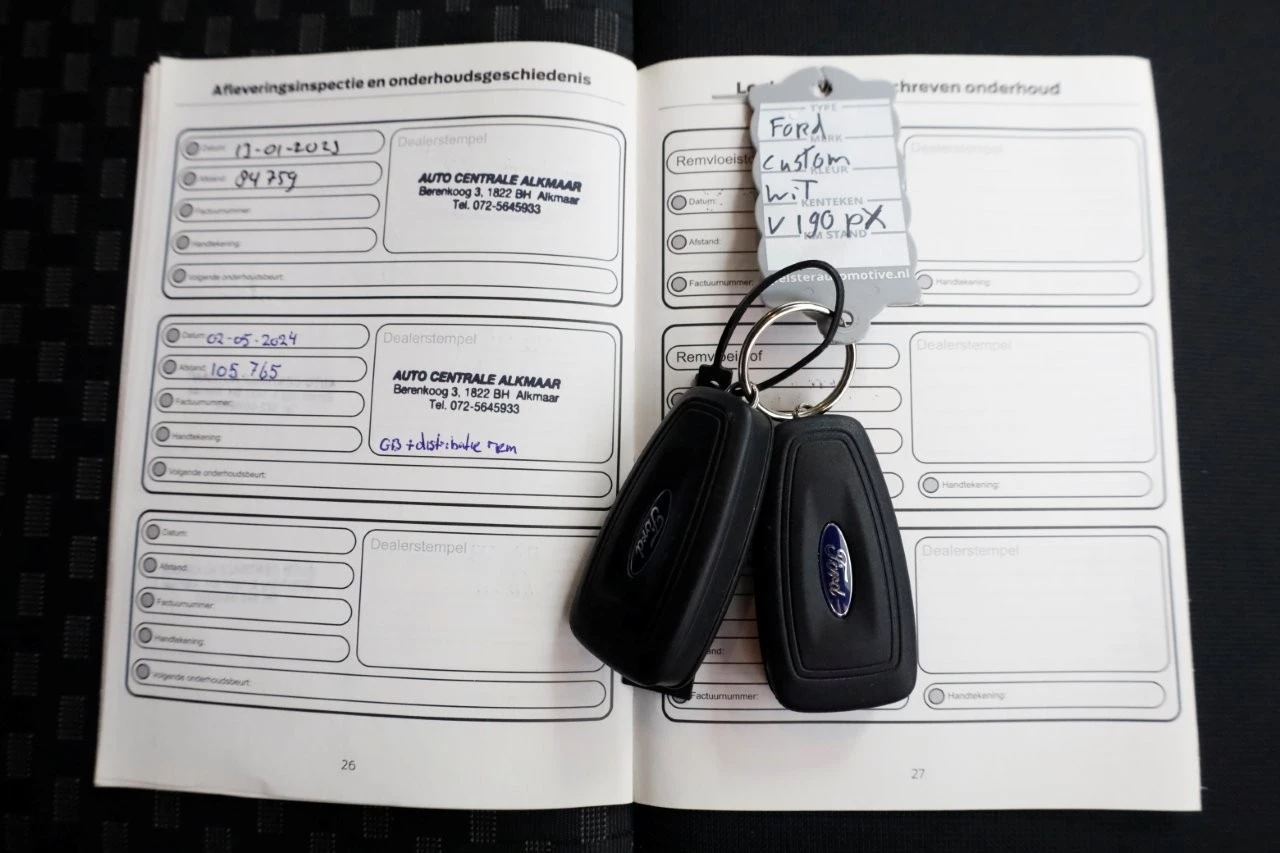 Afleveringsinspectie en onderhoudsgeschiedenis
Datum: 13-01-2023
Afstand: 84 759
Factuurnummer:
Handtekening:
Volgende onderhoudsbeurt:
Dealerstempel
AUTO CENTRALE ALKMAAR
Berenkoog 3, 1822 BH Alkmaar
Tel. 072-5645933
Datum: 02-05-2024
Afstand: 105.765
Factuurnummer:
Handtekening:
Volgende onderhoudsbeurt:
Dealerstempel
AUTO CENTRALE ALKMAAR
Berenkoog 3, 1822 BH Alkmaar
Tel. 072-5645933
GB + distributie riem
Datum:
Afstand:
Factuurnummer:
Handtekening:
Volgende onderhoudsbeurt:
Dealerstempel
26
chreven onderhoud
TYPE
Ford
MERK
Custom
KLEUR
WiT
KENTEKEN
V 190 PX
KM STAND
eisterautomotive.nl
Remvloeisto
Datum:
Afstand:
Factuurnummer:
Dealerstempel
Handtekening:
Remvloeistof
Dealerstempel
Handtekening:
Ford
Ford
Dealerstempel
and:
Factuurnummer:
Handtekening:
27